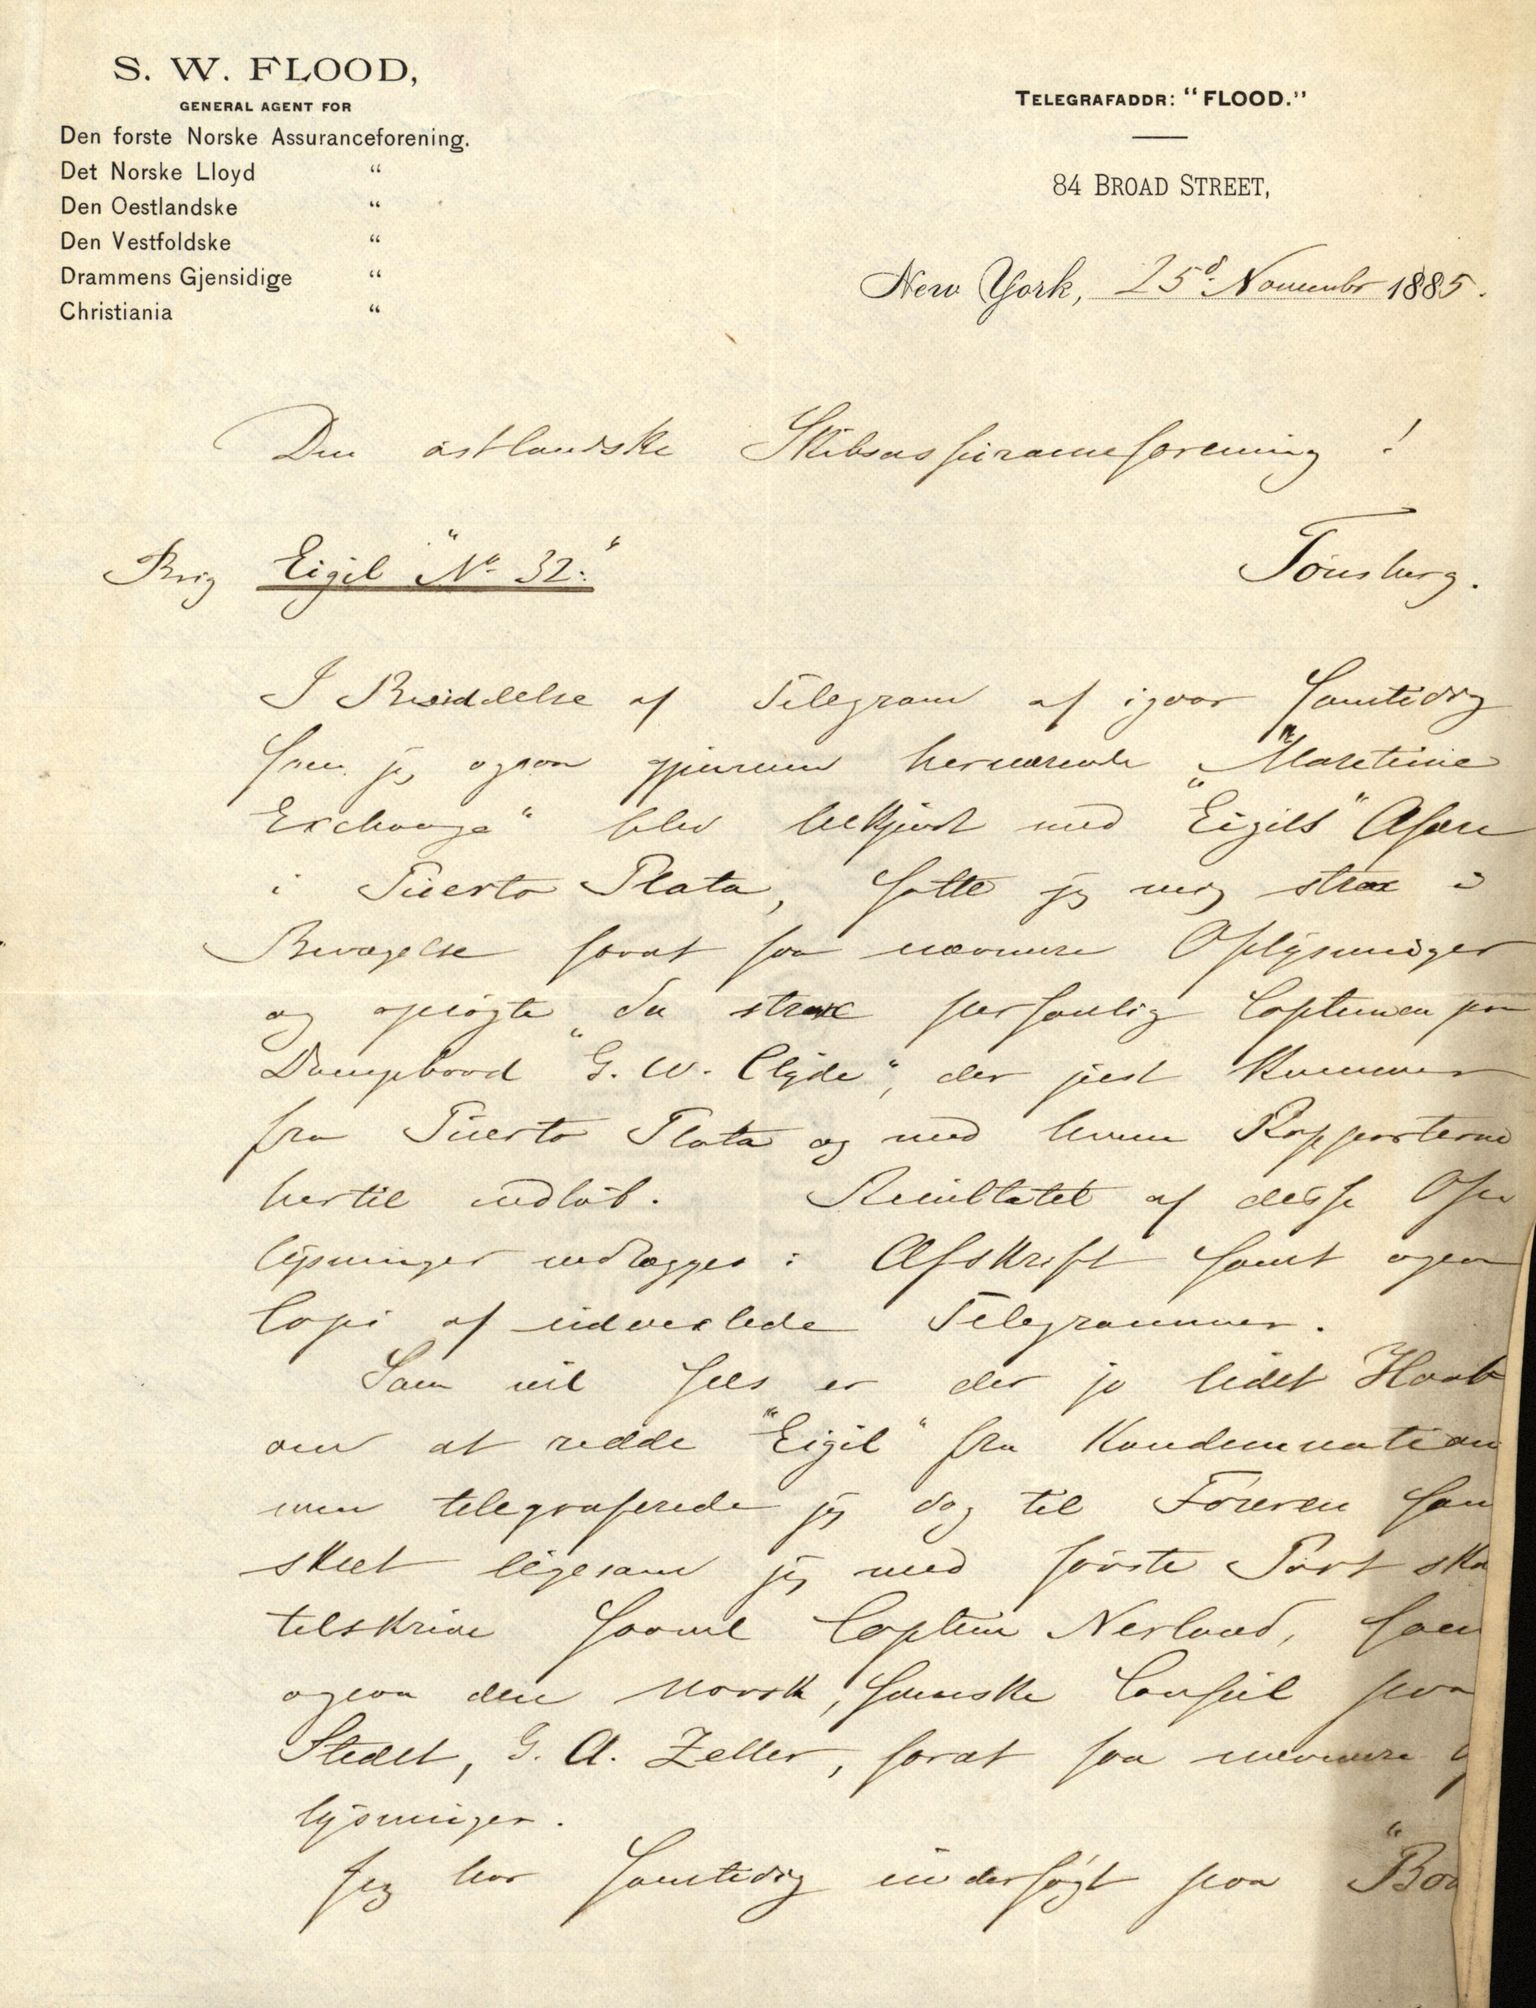 S. W. FLOOD,
GENERAL AGENT FOR
Den forste Norske Assuranceforening.
Det Norske Lloyd "
Den Oestlandske "
Den Vestfoldske "
Drammens Gjensidige "
Christiania "
TELEGRAFADDR: "FLOOD."
84 BROAD STREET,
New York, 25d. November 1885.
Den østlandske Skibsassuranceforening!
Brig "Eigil" No 32.
Tønsberg.
I Besiddelse af Telegram af igaar samtidig
som jeg ogsaa gjennem herværende "Maritime
Exchange" blev bekjendt med "Eigils" Afære
i Puerto Plata, satte jeg mig strax i
Bevægelse forat faa nærmere Oplysninger
og opsøgte da strax personlig Captainen paa
Dampbaad "G. W. Clyde", der just kommer
fra Puerto Plata og med hvem Rapporterne
hertil indløb. Resultatet af disse Op
lysninger indlægges i Afskrift samt ogsaa
Copi af udvexlede Telegrammer.
Som vil sees er der jo lidet Haab
om at redde "Eigil" fra Kondemnation
men telegraferede jeg dog til Føreren som
skeet ligesom jeg med første Post ska
tilskrive saavel Captein Nerlund, som
ogsaa den norsk, svenske Consul paa
Stedet, G. A. Zeller, forat faa nærmere
lysninger.
Jeg har samtidig undersøgt paa "Boa